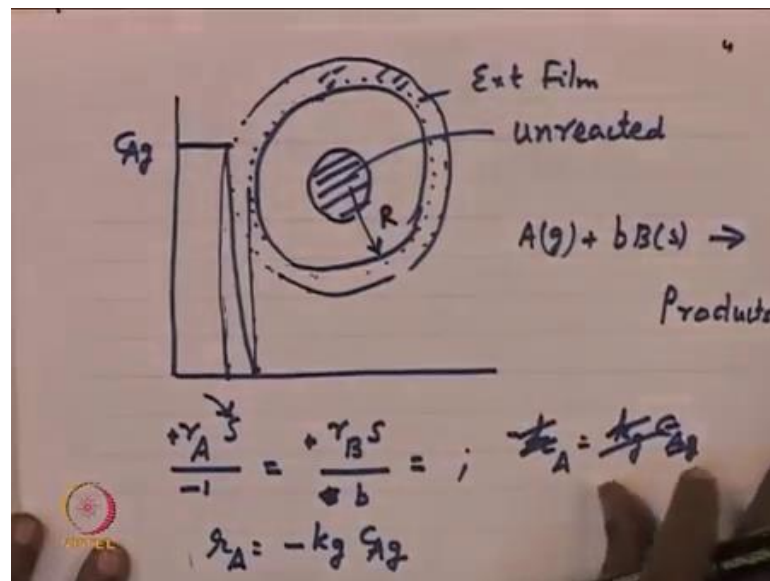 4
Ext Film
unreacted
C_Ag
R
A(g) + bB(s) →
Products
+r_A S / -1 = + r_B S / b = ;
r_A = -kg C_Ag